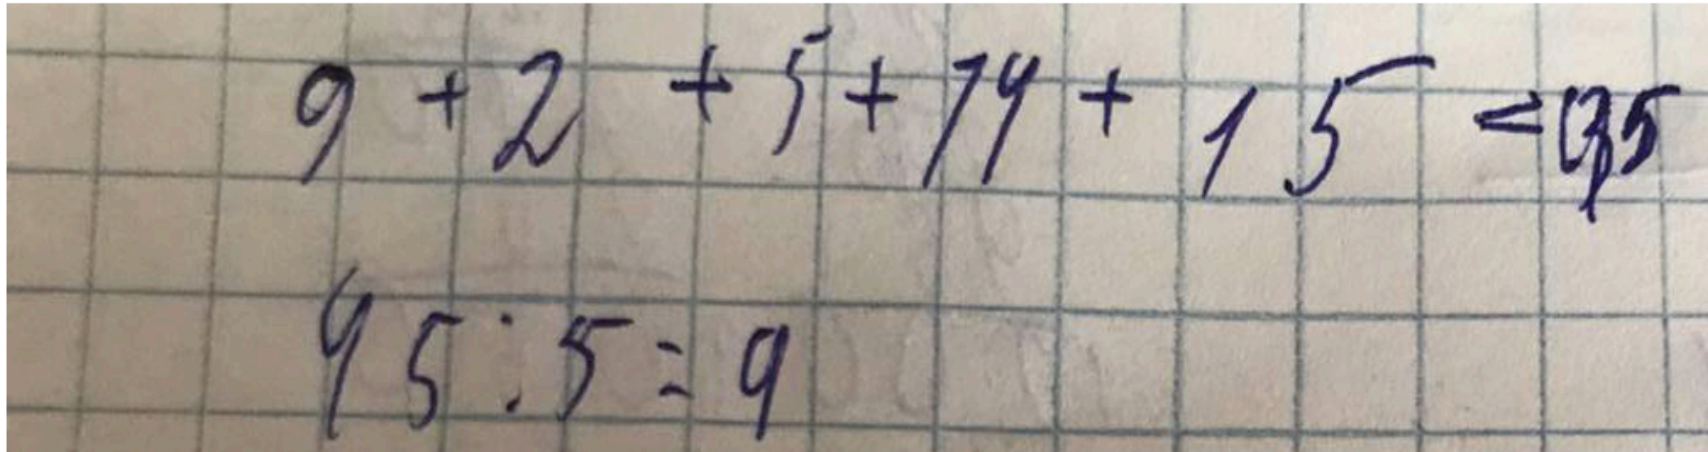 9 + 2 + 5 + 14 + 15 =
45 : 5 = 9